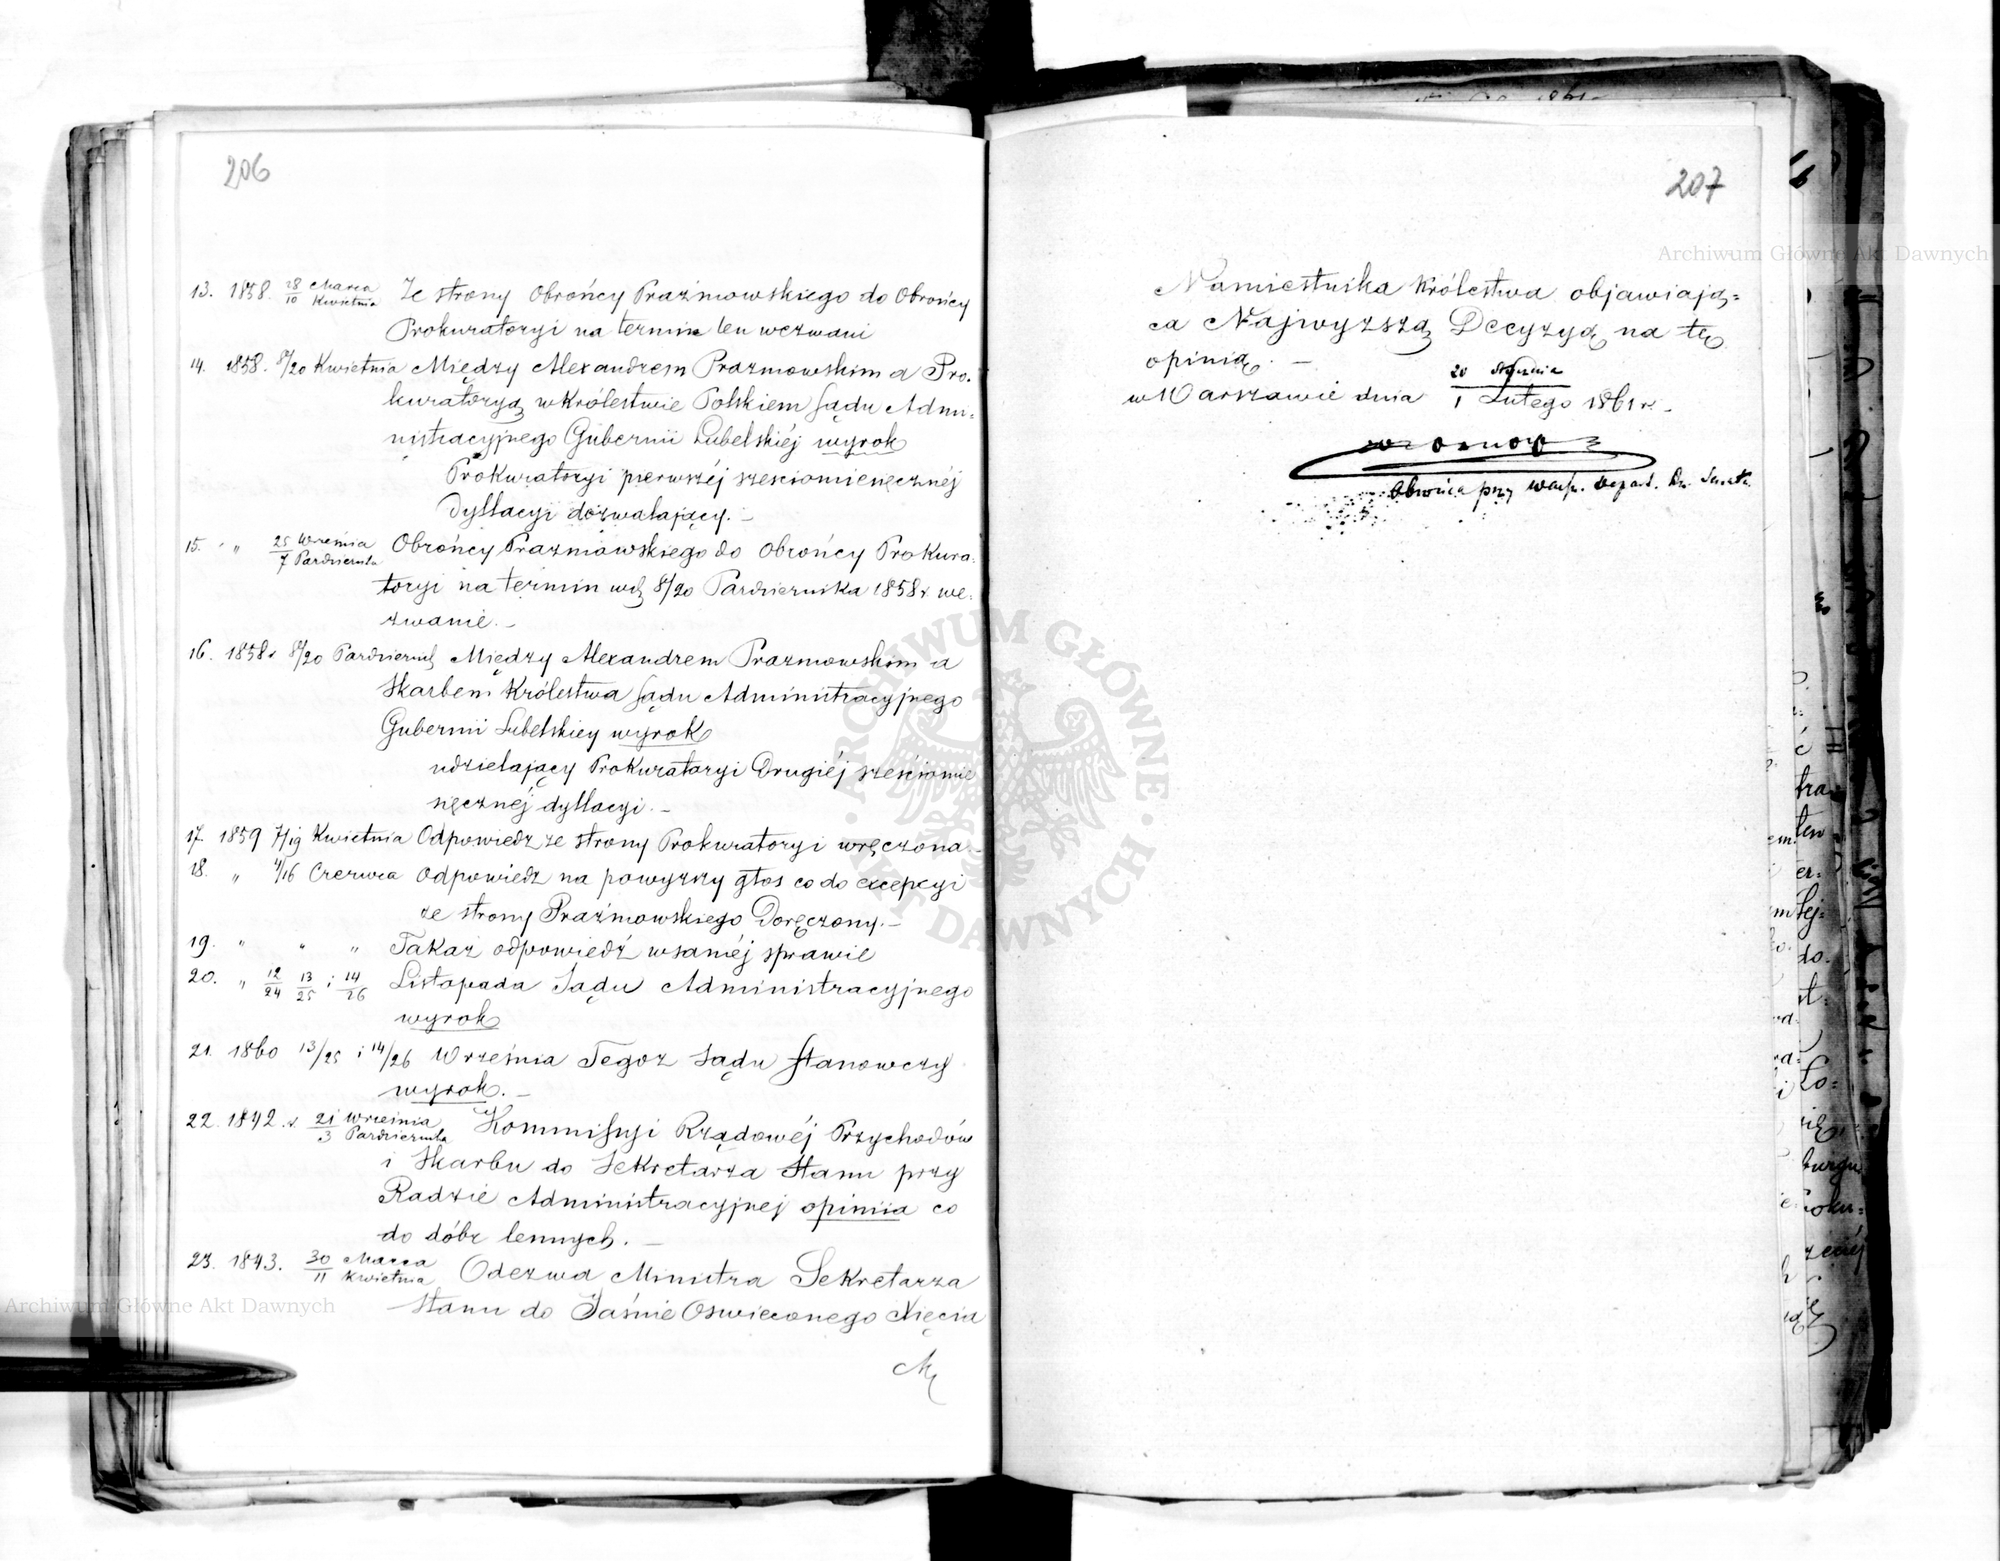 206
13. 1858. 28/10 Marca Kwietnia Ze strony Obrońcy Prażmowskiego do Obrońcy
Prokuratoryi na termin ten wezwani
14. 1858. 8/20 Kwietnia Między Alexandrem Prazmowskim a Pro-
kuratoryą w Królestwie Polskiem Sądu Admi-
nistracyjnego Gubernii Lubelskiéj wyrok
Prokuratoryi pierwszéj sześciomiesięcznéj
dyllacyi dozwalający. –
15. " " 25/7 Września Październ. Obrońcy Prazmowskiego do Obrońcy Prokura-
toryi na termin 8/20 Października 1858 r we-
zwanie. –
16. 1858 r 8/20 Październ. Między Alexandrem Prazmowskim a
Skarbem Królestwa Sądu Administracyjnego
Gubernii Lubelskiey wyrok
udzielający Prokuratoryi Drugiéj sześciomie
sięcznéj dyllacyi. –
17. 1859 7/19 Kwietnia Odpowiedz ze strony Prokuratoryi wręczona –
18. " 4/16 Czerwca Odpowiedz na powyzszy głos co do excepcyi
ze strony Prażmowskiego Doręczony. –
19. " " " Takaż odpowiedź w saméj sprawie
20. " 12/24 13/25 i 14/26 Listopada Sądu Administracyjnego
wyrok
21. 1860 13/25 i 14/26 Września Tegoz Sądu Stanowczy
wyrok. –
22. 1842. r 21/3 Września Październ. Kommissyi Rządowéj Przychodów
i Skarbu do Sekretarza Stanu przy
Radzie Administracyjnej opiniia co
do dóbr lennych. –
23. 1843. 30/11 Marca Kwietnia Odezwa Ministra Sekretarza
Stanu do Jaśnie Oswieconego Xięcia
207
Namiestnika Królestwa objawiają=
ca Najwyższą Decyzyą na tę
opinią. –
w Warszawie dnia 20 Stycznia / 1 Lutego 1861 r. –
Obrońca przy Warsz. Depart. Rz. Senatu
Archiwum Główne Akt Dawnych
ARCHIWUM GŁÓWNE AKT DAWNYCH
Archiwum Główne Akt Dawnych